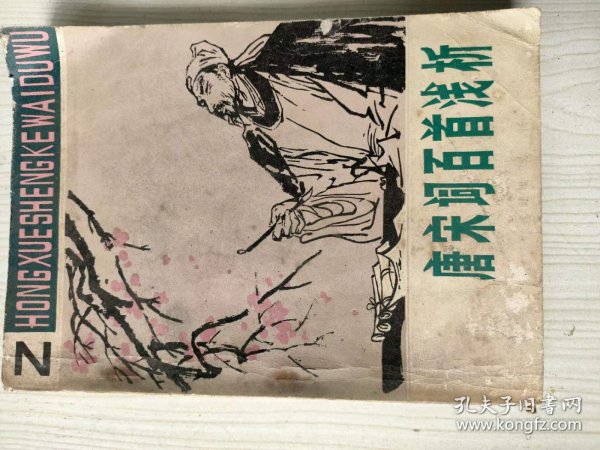 ZHONGXUESHENGKEWAIDUWU
唐宋词百首浅析
孔夫子旧书网
www.kongfz.com